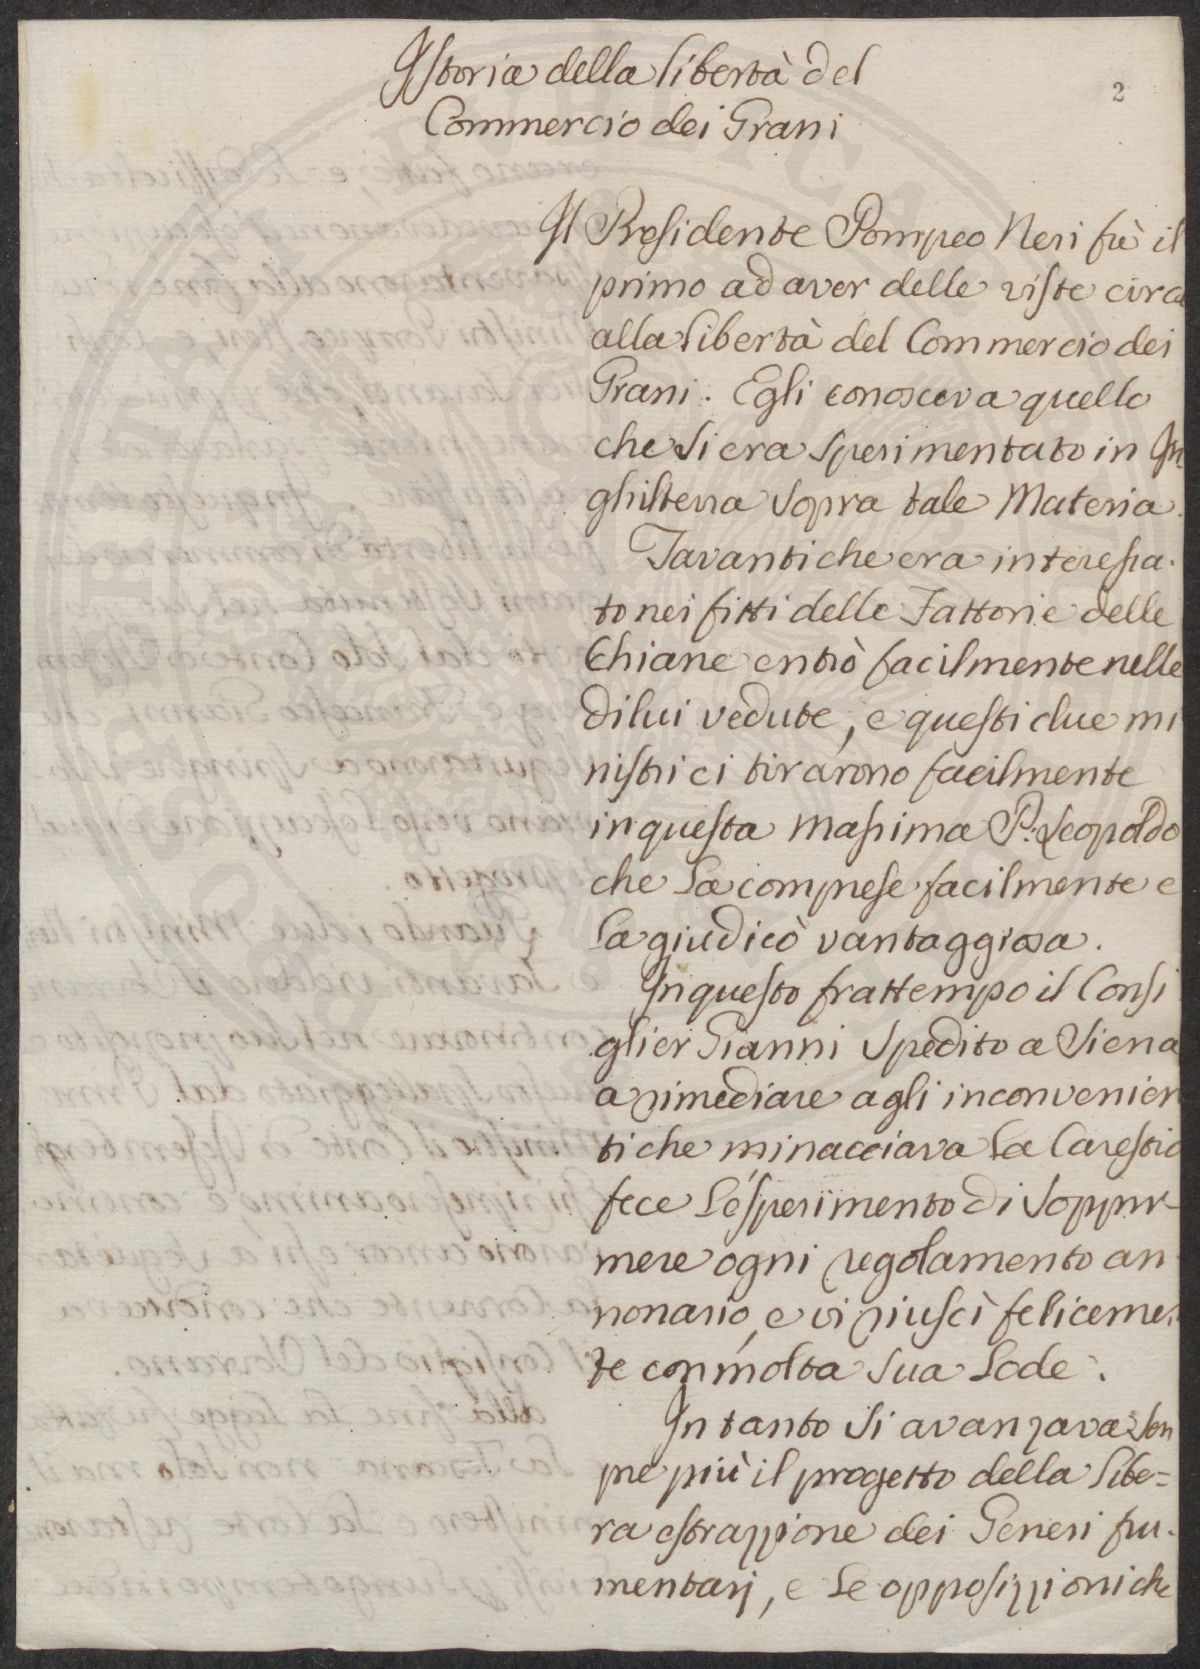 Istoria della libertà del
Commercio dei Grani
2
Il Presidente Pompeo Neri fù il
primo ad aver delle viste circa
alla libertà del Commercio dei
Grani. Egli conosceva quello
che si era sperimentato in In
ghilterra sopra tale Materia.
Tavanti che era interessa-
to nei fitti delle Fattorie delle
Chiane entrò facilmente nelle
di lui vedute, e questi due mi
nistri ci tirarono facilmente
in questa massima P: Leopoldo
che la comprese facilmente e
la giudicò vantaggiosa.
In questo frattempo il Consi
glier Gianni spedito a Siena
a rimediare agli inconvenien
ti che minacciava la Carestia
fece l'esperimento di soppri-
mere ogni regolamento an-
nonario, e vi riuscì feliceme
te con molta sua lode.
In tanto si avanzava sem
pre più il progetto della libe=
ra estrazzione dei Generi fru-
mentarj, e le opposizzioni che